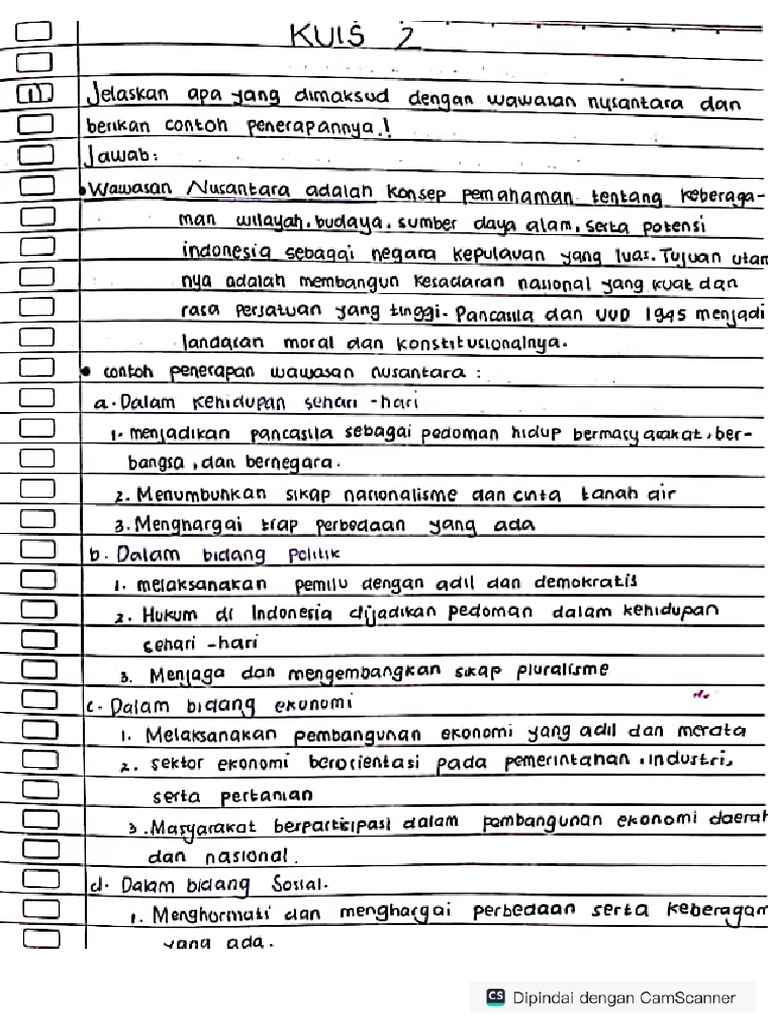 KUIS 2
1) Jelaskan apa yang dimaksud dengan wawasan nusantara dan
berikan contoh penerapannya.!
Jawab:
• Wawasan Nusantara adalah konsep pemahaman tentang keberaga-
man wilayah, budaya, sumber daya alam, serta potensi
indonesia sebagai negara kepulauan yang luas. Tujuan utam
nya adalah membangun kesadaran nasional yang kuat dan
rasa persatuan yang tinggi. Pancasila dan UUD 1945 menjadi
landasan moral dan konstitusionalnya.
• contoh penerapan wawasan nusantara :
a. Dalam kehidupan sehari -hari
1. menjadikan pancasila sebagai pedoman hidup bermasyarakat, ber-
bangsa, dan bernegara.
2. Menumbuhkan sikap nasionalisme dan cinta tanah air
3. Menghargai tiap perbedaan yang ada
b. Dalam bidang politik
1. melaksanakan pemilu dengan adil dan demokratis
2. Hukum di Indonesia dijadikan pedoman dalam kehidupan
sehari -hari
3. Menjaga dan mengembangkan sikap pluralisme
c. Dalam bidang ekonomi
1. Melaksanakan pembangunan ekonomi yang adil dan merata
2. sektor ekonomi berorientasi pada pemerintahan, industri,
serta pertanian
3. Masyarakat berpartisipasi dalam pembangunan ekonomi daerah
dan nasional.
d. Dalam bidang Sosial.
1. Menghormati dan menghargai perbedaan serta keberagam
yang ada.
CS Dipindai dengan CamScanner